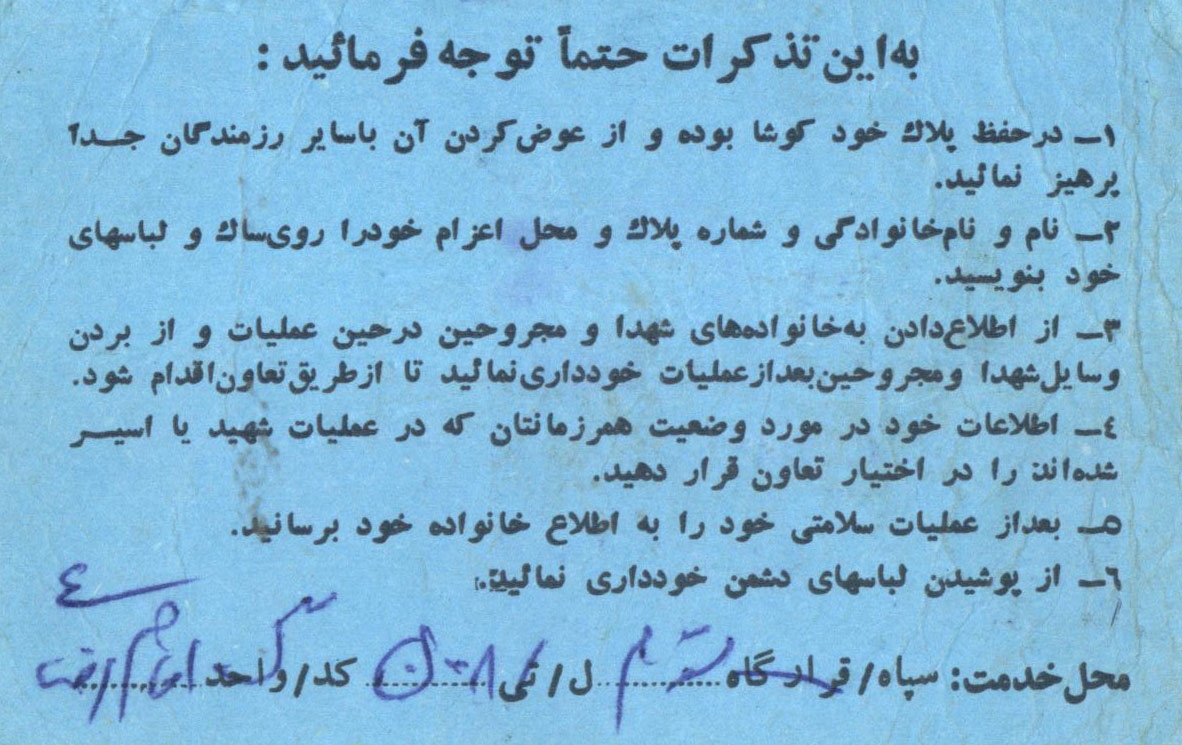 به این تذکرات حتماً توجه فرمائید:
۱ـ در حفظ پلاک خود کوشا بوده و از عوض‌کردن آن با سایر رزمندگان جداً
پرهیز نمائید.
۲ـ نام و نام‌خانوادگی و شماره پلاک و محل اعزام خود را روی ساک و لباسهای
خود بنویسید.
۳ـ از اطلاع‌دادن به‌خانواده‌های شهدا و مجروحین درحین عملیات و از بردن
وسایل شهدا و مجروحین بعد از عملیات خودداری نمائید تا از طریق تعاون اقدام شود.
٤ـ اطلاعات خود در مورد وضعیت همرزمانتان که در عملیات شهید یا اسیر
شده‌اند را در اختیار تعاون قرار دهید.
۵ـ بعد از عملیات سلامتی خود را به اطلاع خانواده خود برسانید.
٦ـ از پوشیدن لباسهای دشمن خودداری نمائید.
محل خدمت: سپاه/قرارگاه ل/تی کد/واحد